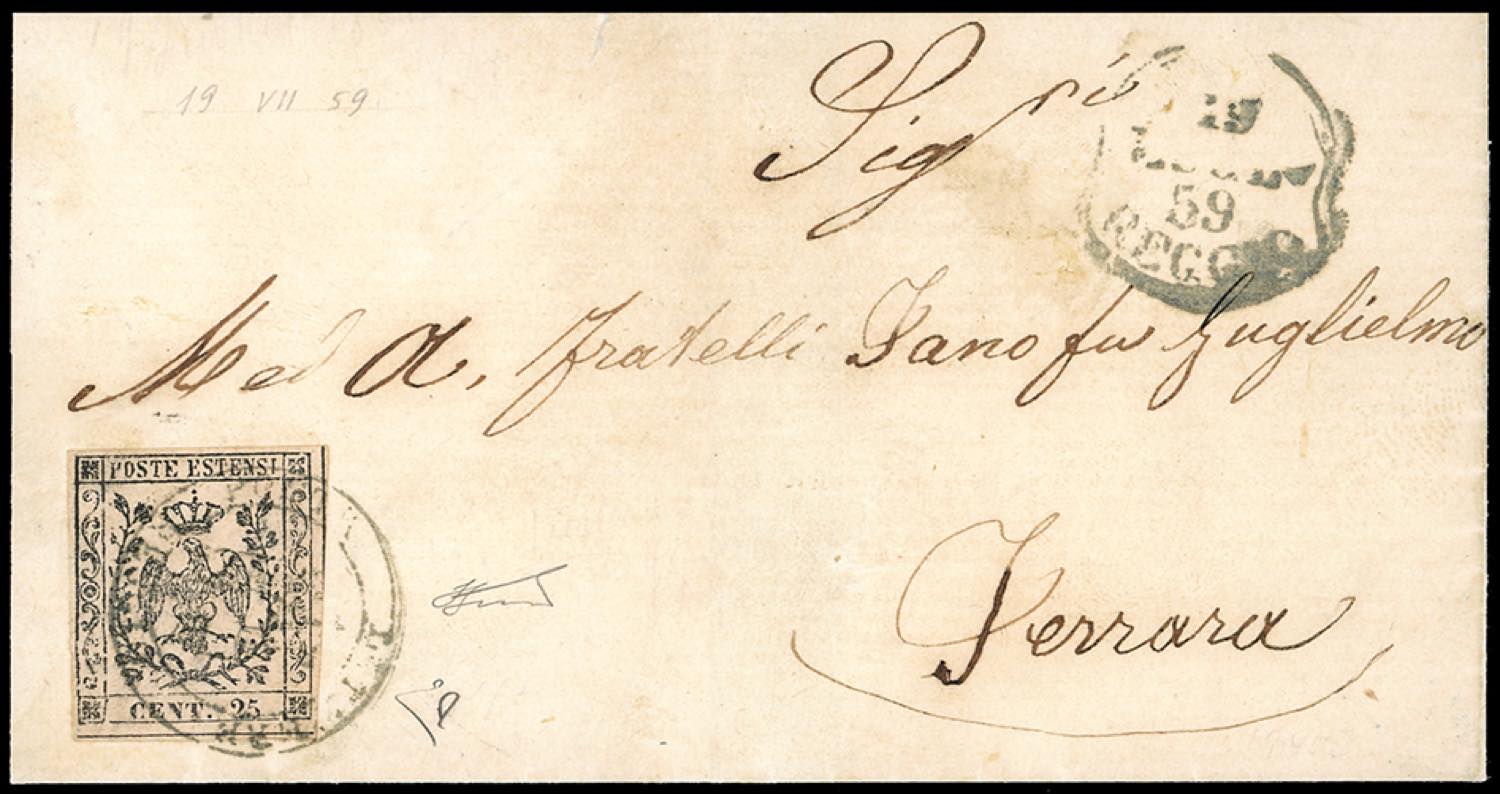 19 VII 59
Sig.ri
19
LUGLIO
59
REGGIO
Med A. Fratelli Fano fu Guglielmo
Ferrara
POSTE ESTENSI
CENT. 25